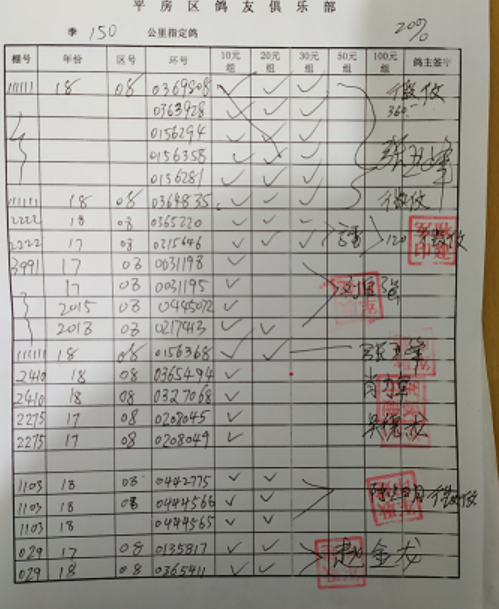 平房区鸽友俱乐部
季 150 公里指定鸽 20%
棚号 年份 区号 环号 10元组 20元组 30元组 50元组 100元组 鸽主签字
11111 18 08 0369808 ✓ ✓ ✓ 微收
0363928 ✓ ✓ ✓ 360
0156294 ✓ ✓ ✓
0156358 ✓ ✓ ✓
0156281 ✓ ✓ ✓
111111 18 08 0364835 ✓ ✓ ✓ 微收
2222 18 08 0365220 ✓ ✓ ✓
2222 17 08 0215646 ✓ ✓ ✓ 120 微收
3991 17 08 0031198 ✓
17 08 0031195 ✓
2015 08 0445072 ✓
2013 03 0217413 ✓ ✓
111111 18 08 0156368 ✓ ✓
2410 18 08 0365494 ✓
2410 18 08 0327068 ✓
2275 17 08 0208045 ✓
2275 17 08 0208049 ✓
1103 18 08 0442775 ✓ ✓
1103 18 08 0444566 ✓ ✓ 微收
1103 18 0444565 ✓ ✓
029 17 08 0135817 ✓ ✓ ✓ 赵金龙
029 18 08 0365411 ✓ ✓ ✓